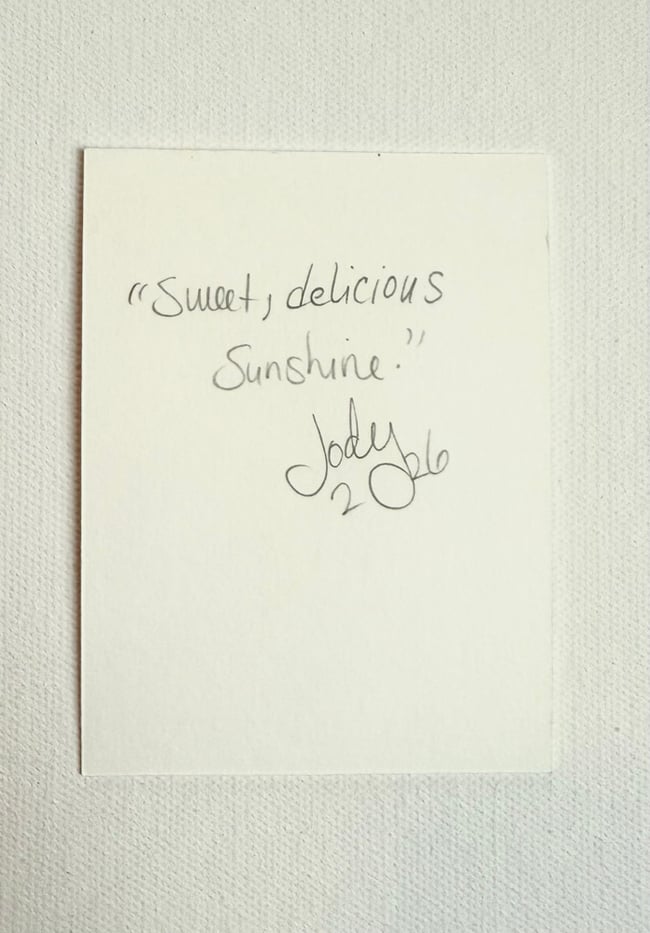 "Sweet, delicious
Sunshine."
Jody
2026